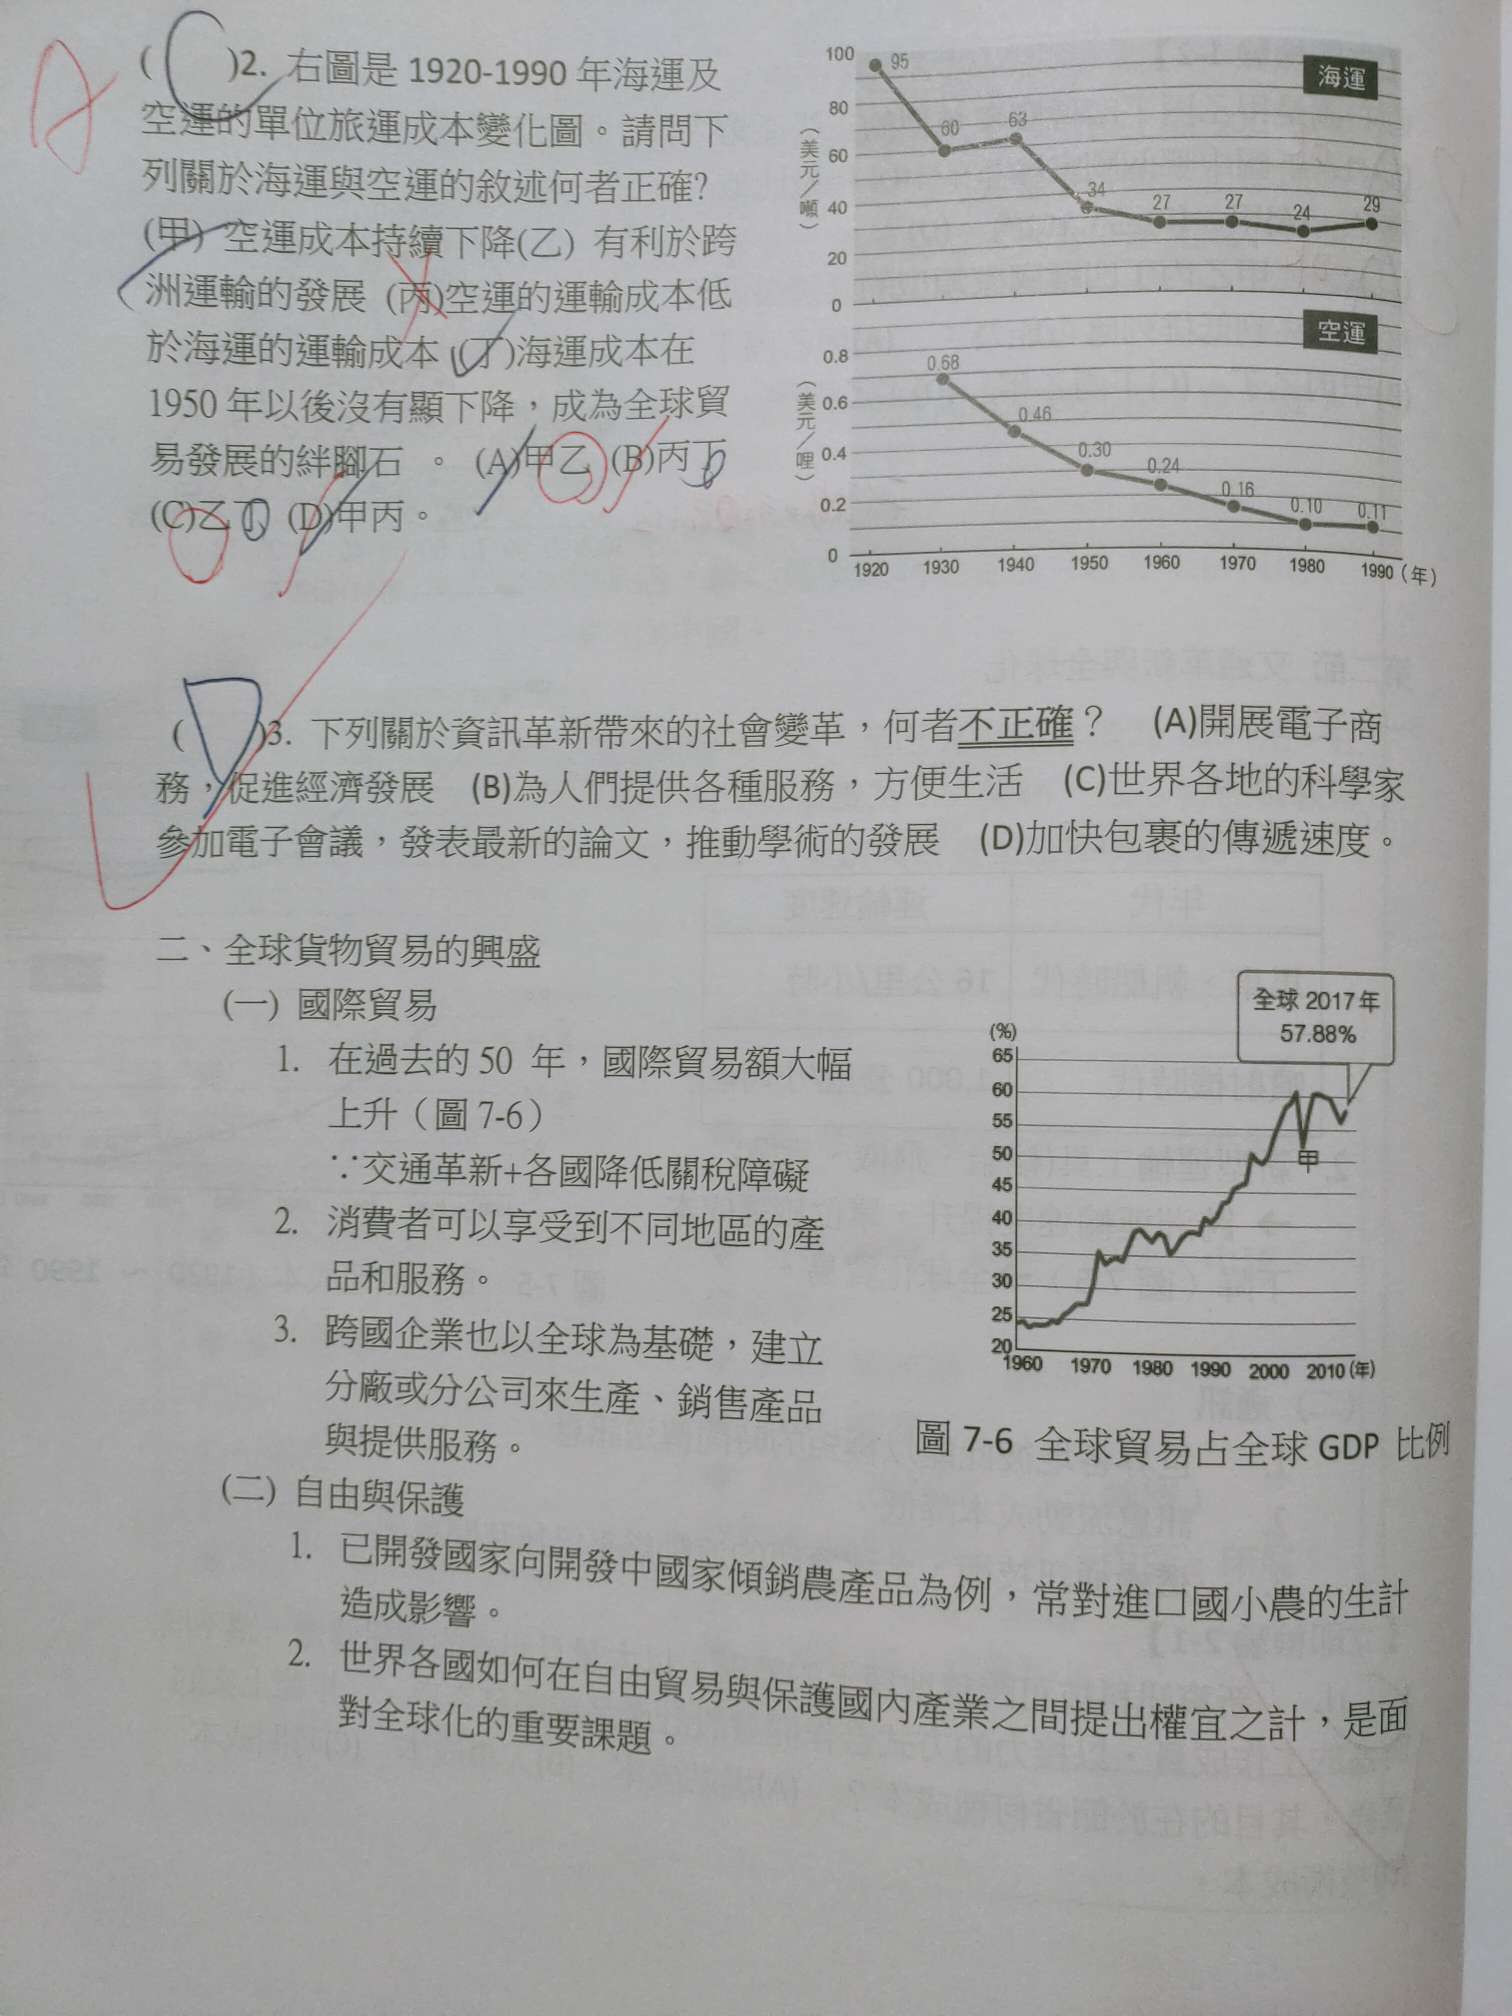 A
( C )2. 右圖是 1920-1990 年海運及
空運的單位旅運成本變化圖。請問下
列關於海運與空運的敘述何者正確?
(甲) 空運成本持續下降(乙) 有利於跨
洲運輸的發展 (丙)空運的運輸成本低
於海運的運輸成本 (丁)海運成本在
1950 年以後沒有顯下降，成為全球貿
易發展的絆腳石 。 (A)甲乙 (B)丙丁
(C)乙丁 (D)甲丙。
海運
(美元/噸)
100
80
60
40
20
0
95
60
63
34
27
27
24
29
空運
(美元/哩)
0.8
0.6
0.4
0.2
0
0.68
0.46
0.30
0.24
0.16
0.10
0.11
1920 1930 1940 1950 1960 1970 1980 1990 (年)
( D )3. 下列關於資訊革新帶來的社會變革，何者不正確？ (A)開展電子商
務，促進經濟發展 (B)為人們提供各種服務，方便生活 (C)世界各地的科學家
參加電子會議，發表最新的論文，推動學術的發展 (D)加快包裹的傳遞速度。
二、全球貨物貿易的興盛
(一) 國際貿易
1. 在過去的 50 年，國際貿易額大幅
上升（圖 7-6）
∵交通革新+各國降低關稅障礙
2. 消費者可以享受到不同地區的產
品和服務。
3. 跨國企業也以全球為基礎，建立
分廠或分公司來生產、銷售產品
與提供服務。
全球 2017 年
57.88%
(%)
65
60
55
50
45
40
35
30
25
20
甲
1960 1970 1980 1990 2000 2010 (年)
圖 7-6 全球貿易占全球 GDP 比例
(二) 自由與保護
1. 已開發國家向開發中國家傾銷農產品為例，常對進口國小農的生計
造成影響。
2. 世界各國如何在自由貿易與保護國內產業之間提出權宜之計，是面
對全球化的重要課題。